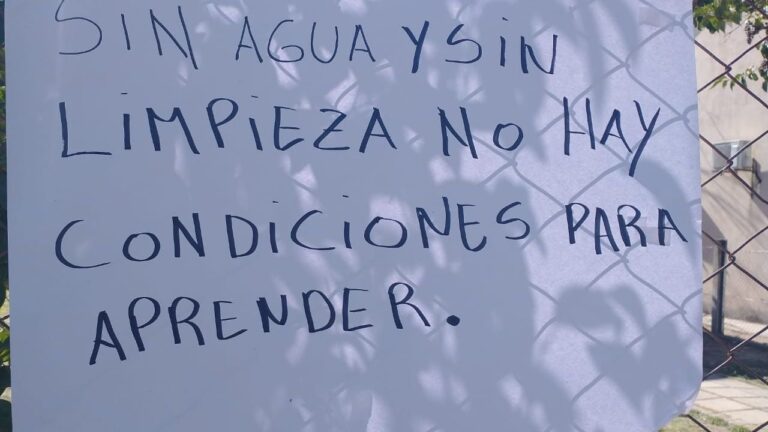 SIN AGUA Y SIN
LIMPIEZA NO HAY
CONDICIONES PARA
APRENDER.